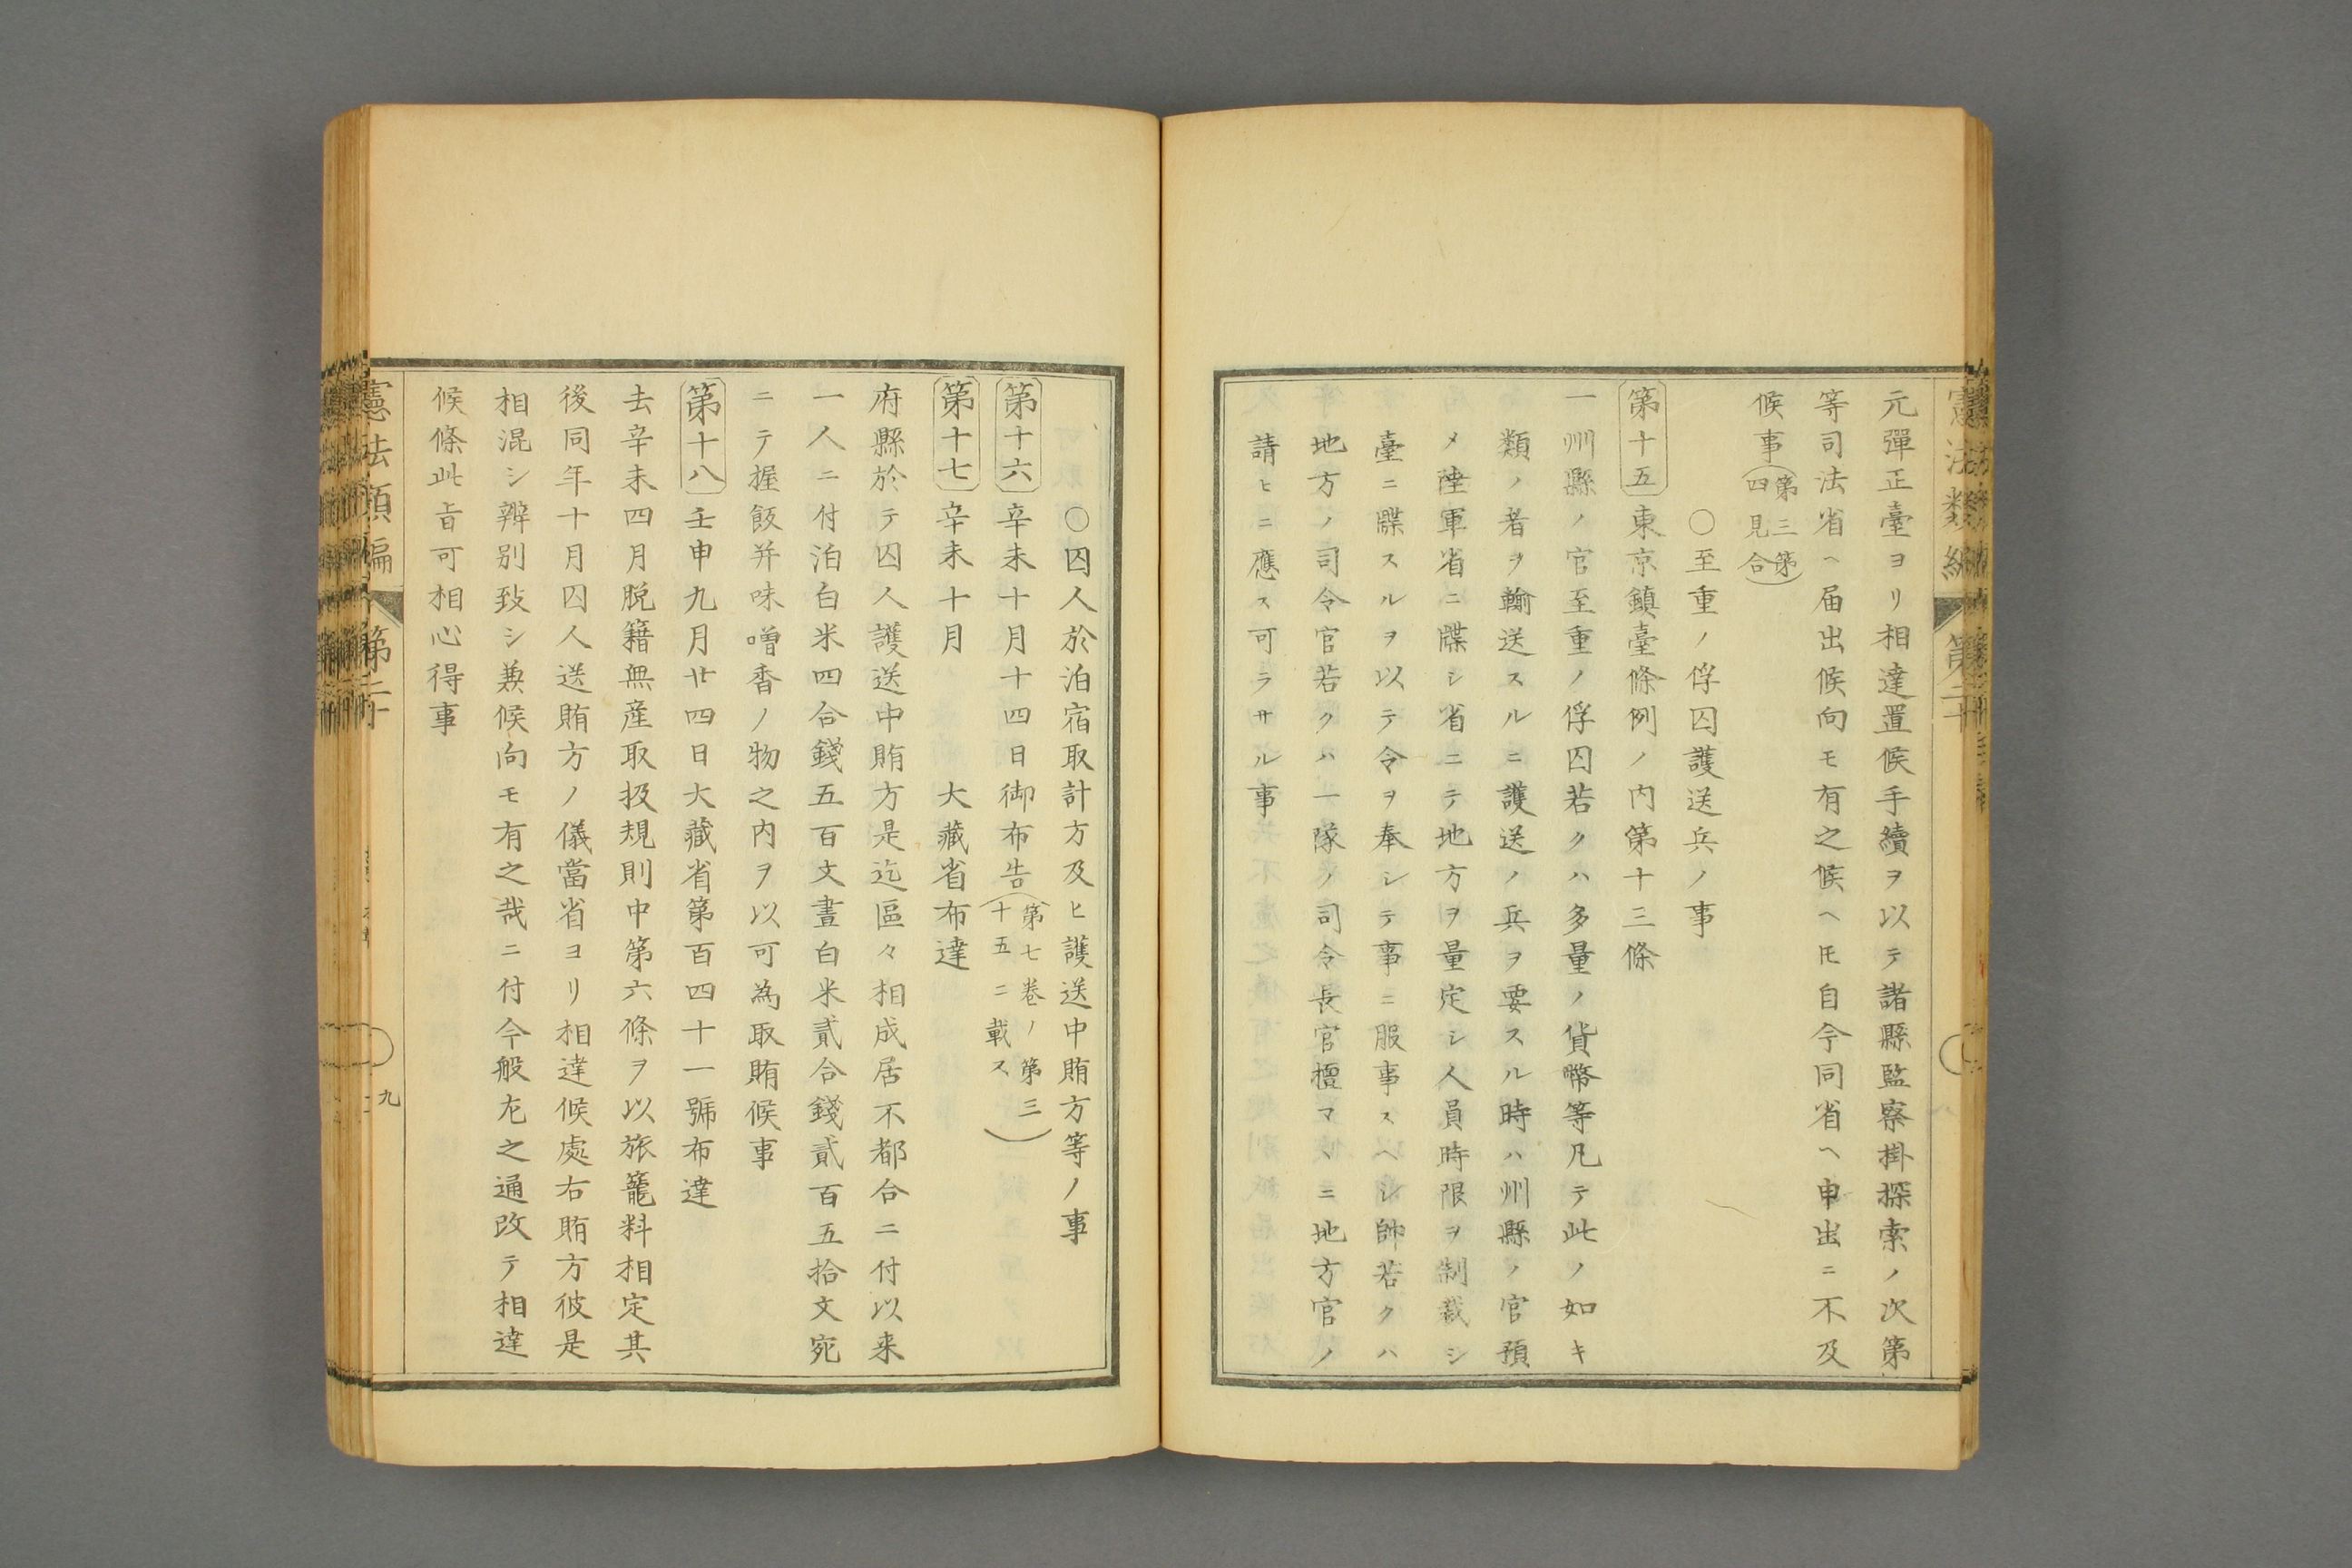 元彈正臺ヨリ相達置候手續ヲ以テ諸縣監察掛探索ノ次第
等司法省ヘ届出候向モ有之候ヘ𪜈自今同省ヘ申出ニ不及
候事(第三第四見合)
〇至重ノ俘囚護送兵ノ事
第十五東京鎮臺條例ノ内第十三條
一州縣ノ官至重ノ俘囚若クハ多量ノ貨幣等凡テ此ノ如キ
類ノ者ヲ輸送スルニ護送ノ兵ヲ要スル時ハ州縣ノ官預
メ陸軍省ニ牒シ省ニテ地方ヲ量定シ人員時限ヲ制裁シ
臺ニ牒スルヲ以テ令ヲ奉シテ事ニ服事スヘシ帥若クハ
地方ノ司令官若クハ一隊ノ司令長官檀マヽニ地方官ノ
請ヒニ應ス可ラサル事
〇囚人於泊宿取計方及ヒ護送中賄方等ノ事
第十六辛未十月十四日御布告(第七卷ノ第三十五ニ載ス)
第十七辛未十月 大藏省布達
府縣於テ囚人護送中賄方是迄區々相成居不都合ニ付以来
一人ニ付泊白米四合錢五百文晝白米貳合錢貳百五拾文宛
ニテ握飯并味噌香ノ物之内ヲ以可為取賄候事
第十八壬申九月廿四日大藏省第百四十一號布達
去辛未四月脱籍無産取扱規則中第六條ヲ以旅籠料相定其
後同年十月囚人送賄方ノ儀當省ヨリ相達候處右賄方彼是
相混シ辨别致シ兼候向モ有之哉ニ付今般左之通改テ相達
候條此旨可相心得事
憲法類編 第二十
九